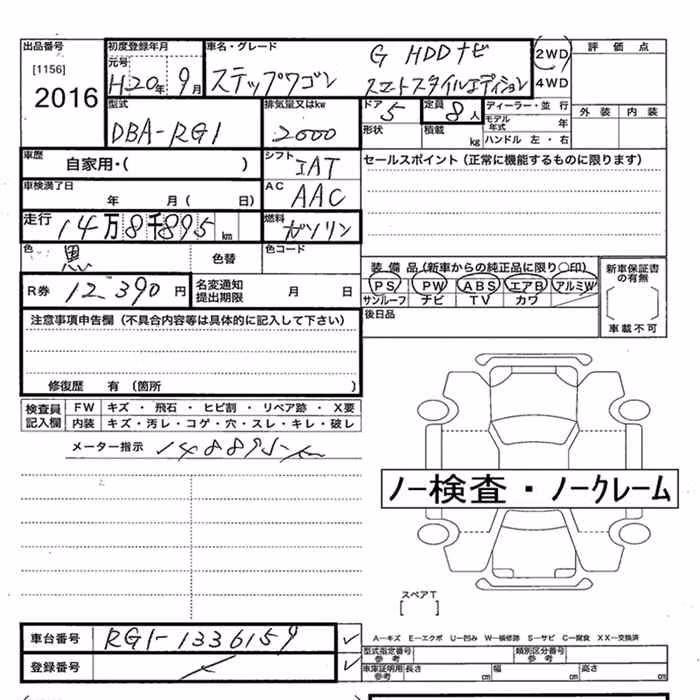 出品番号 初度登録年月 車名・グレード G HDDナビ 2WD 評価点
[1156] 元号 H20年 9月 ステップワゴン スマートスタイルエディション 4WD
2016 型式 排気量又はkw ドア 5 定員 8人 ディーラー・並行 外装 内装
DBA-RG1 2000 形状 積載 kg モデル年式 年
ハンドル 左・右
車歴 自家用・( ) シフト IAT セールスポイント (正常に機能するものに限ります)
車検満了日 年 月( 日) AC AAC
走行 14万8千895km 燃料 ガソリン
色 黒 色替 色コード 装備品(新車からの純正品に限り○印) 新車保証書の有無
R券 12,390円 名変通知提出期限 月 日 PS PW ABS エアB アルミW
サンルーフ ナビ TV カワ
[ ]
注意事項申告欄 (不具合内容等は具体的に記入して下さい) 後日品 車載不可
修復歴 有 (箇所 )
検査員記入欄 FW キズ・飛石・ヒビ割・リペア跡・X要
内装 キズ・汚レ・コゲ・穴・スレ・キレ・破レ
メーター指示 148895km
ノー検査・ノークレーム
スペアT
[ ]
車台番号 RG1-1336159 ✓ A-キズ E-エクボ U-凹み W-補修跡 S-サビ C-腐食 XX-交換済
登録番号 ✓ 型式指定番号 参考 類別区分番号 参考
車庫証明用 参考 長さ cm 幅 cm 高さ cm